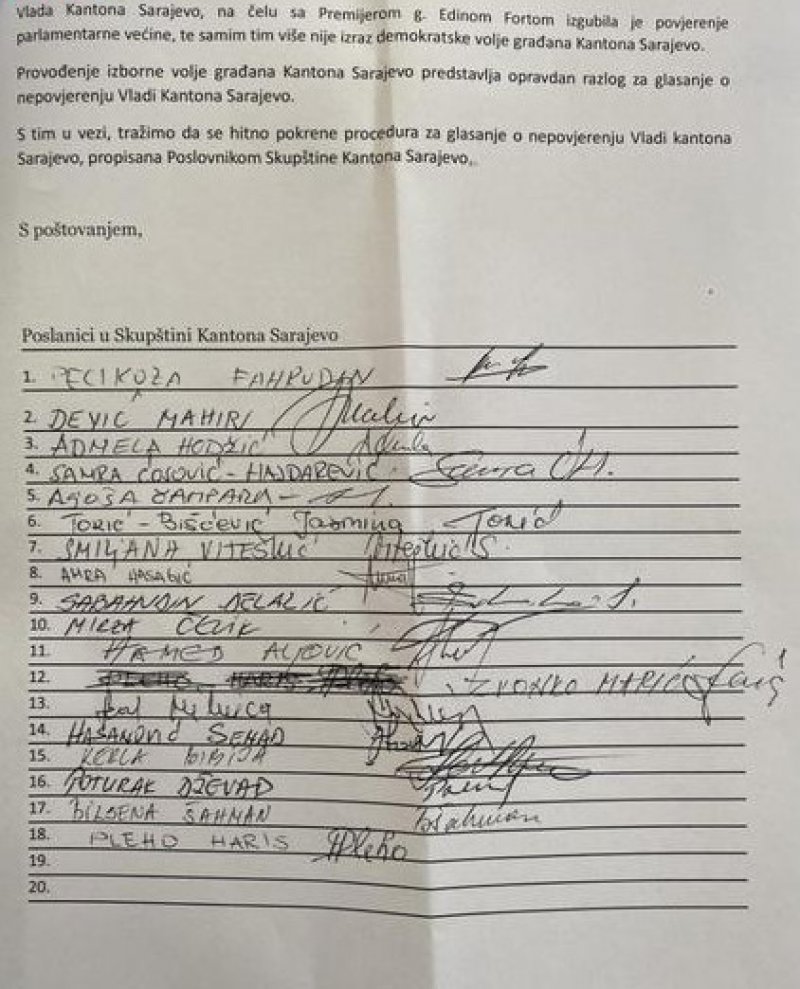 Vlada Kantona Sarajevo, na čelu sa Premijerom g. Edinom Fortom izgubila je povjerenje
parlamentarne većine, te samim tim više nije izraz demokratske volje građana Kantona Sarajevo.
Provođenje izborne volje građana Kantona Sarajevo predstavlja opravdan razlog za glasanje o
nepovjerenju Vladi Kantona Sarajevo.
S tim u vezi, tražimo da se hitno pokrene procedura za glasanje o nepovjerenju Vladi kantona
Sarajevo, propisana Poslovnikom Skupštine Kantona Sarajevo.
S poštovanjem,
Poslanici u Skupštini Kantona Sarajevo
1. PECIKOZA FAHRUDAN
2. DEVIĆ MAHIR
3. ADMELA HODŽIĆ Admela
4. SAMRA ĆOSOVIĆ-HAJDAREVIĆ Samra Ć.H.
5.
6. TORIĆ-BIŠĆEVIĆ Jasmina Torić
7. SMILJANA VITEŠKIĆ Viteškić S.
8. AMRA HASAGIĆ
9. SABAHUDIN DELALIĆ
10. MIRZA ČELIK
11. HAMED ALJOVIĆ
12. PLEHO HARIS ZVONKO MARIĆ
13.
14. HAŠANOVIĆ SENAD
15. KERLA BIBIJA
16. POTURAK DŽEVAD
17. BILSENA ŠAHMAN BŠahman
18. PLEHO HARIS HPleho
19.
20.